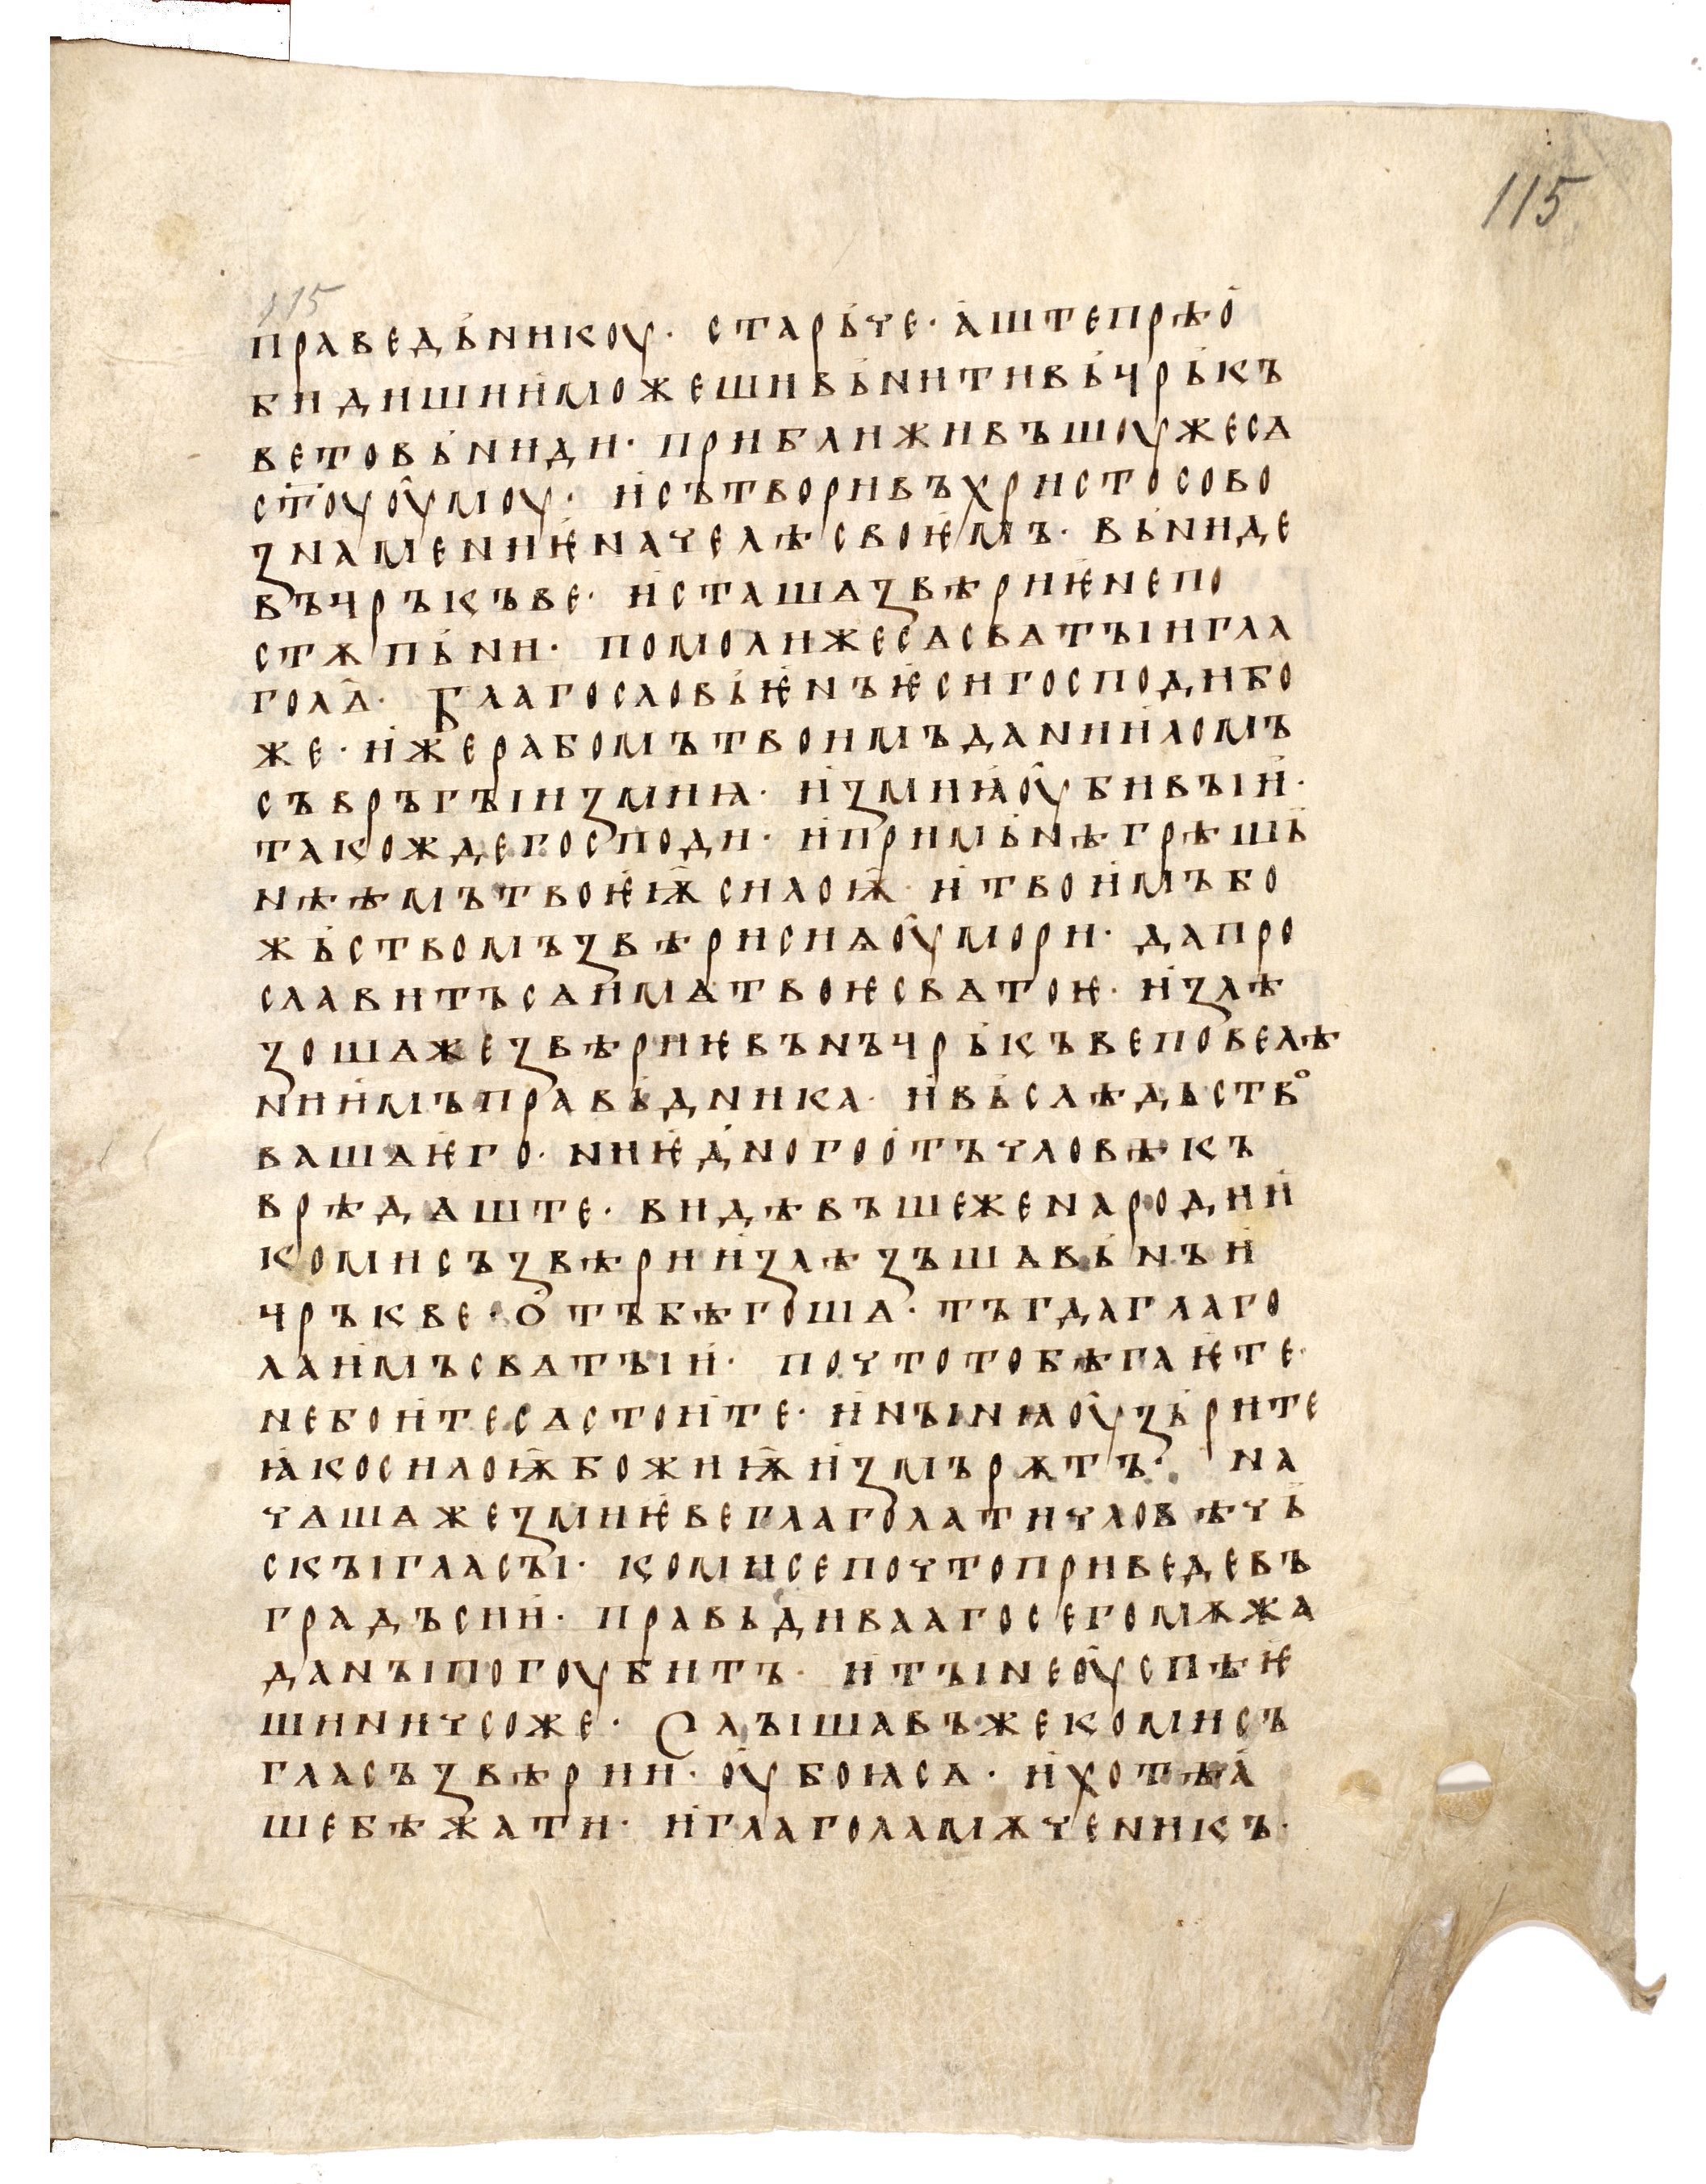 115
115
праведьникоу· старьче· аштепрѣо
бидишиниможешивьнитивьчрькъ
ветовьниди· приближивъшоужесѧ
стоуоумоу· исътворивъхристосово
знамениѥначелѣсвоѥмъ· вьниде
въчръкъве· исташѧзвѣриѥнепо
стѫпьни· помолижесѧсвѧтыигла
голѧ· благословьѥнъѥсигосподибо
же· ижерабомътвоимъданииломъ
съвръгыизмиꙗ· измиꙗоубивыи·
такождегосподи· ипримьнѣгрѣшь
нѣѣмътвоѥѭсилоѭ· итвоимъбо
жьствомъзвѣрисиѩоумори· дапро
славитъсѧимѧтвоѥсвѧтоѥ· излѣ
зошѧжезвѣриѥвънъчрькъвеповелѣ
ниимъправьдника· ивьслѣдьство
вашѧѥго· ниѥдьногоотъчловѣкъ
врѣдѧште· видѣвъшеженародии
комисъзвѣриизлѣзъшѧвьнъи
чръкве· отъбѣгошѧ· тъгдаглаго
лаимъсвѧтыи· почтотобѣгаѥте·
небоитесѧстоите· инынꙗоузьрите
ꙗкосилоѭбожиѭизмърѫтъ· на
чѧшѧжезмиѥвеглаголатичловѣчь
скыгласы· комисепочтоприведевъ
градъсии· правьдиваагосегомѫжа
даныпогоубитъ· итынеоуспѣѥ
шиничсоже· Слышавъжекомисъ
гласъзвѣрии· оубоꙗсѧ· ихотѣа
шебѣжати· иглаголамѫченикъ·